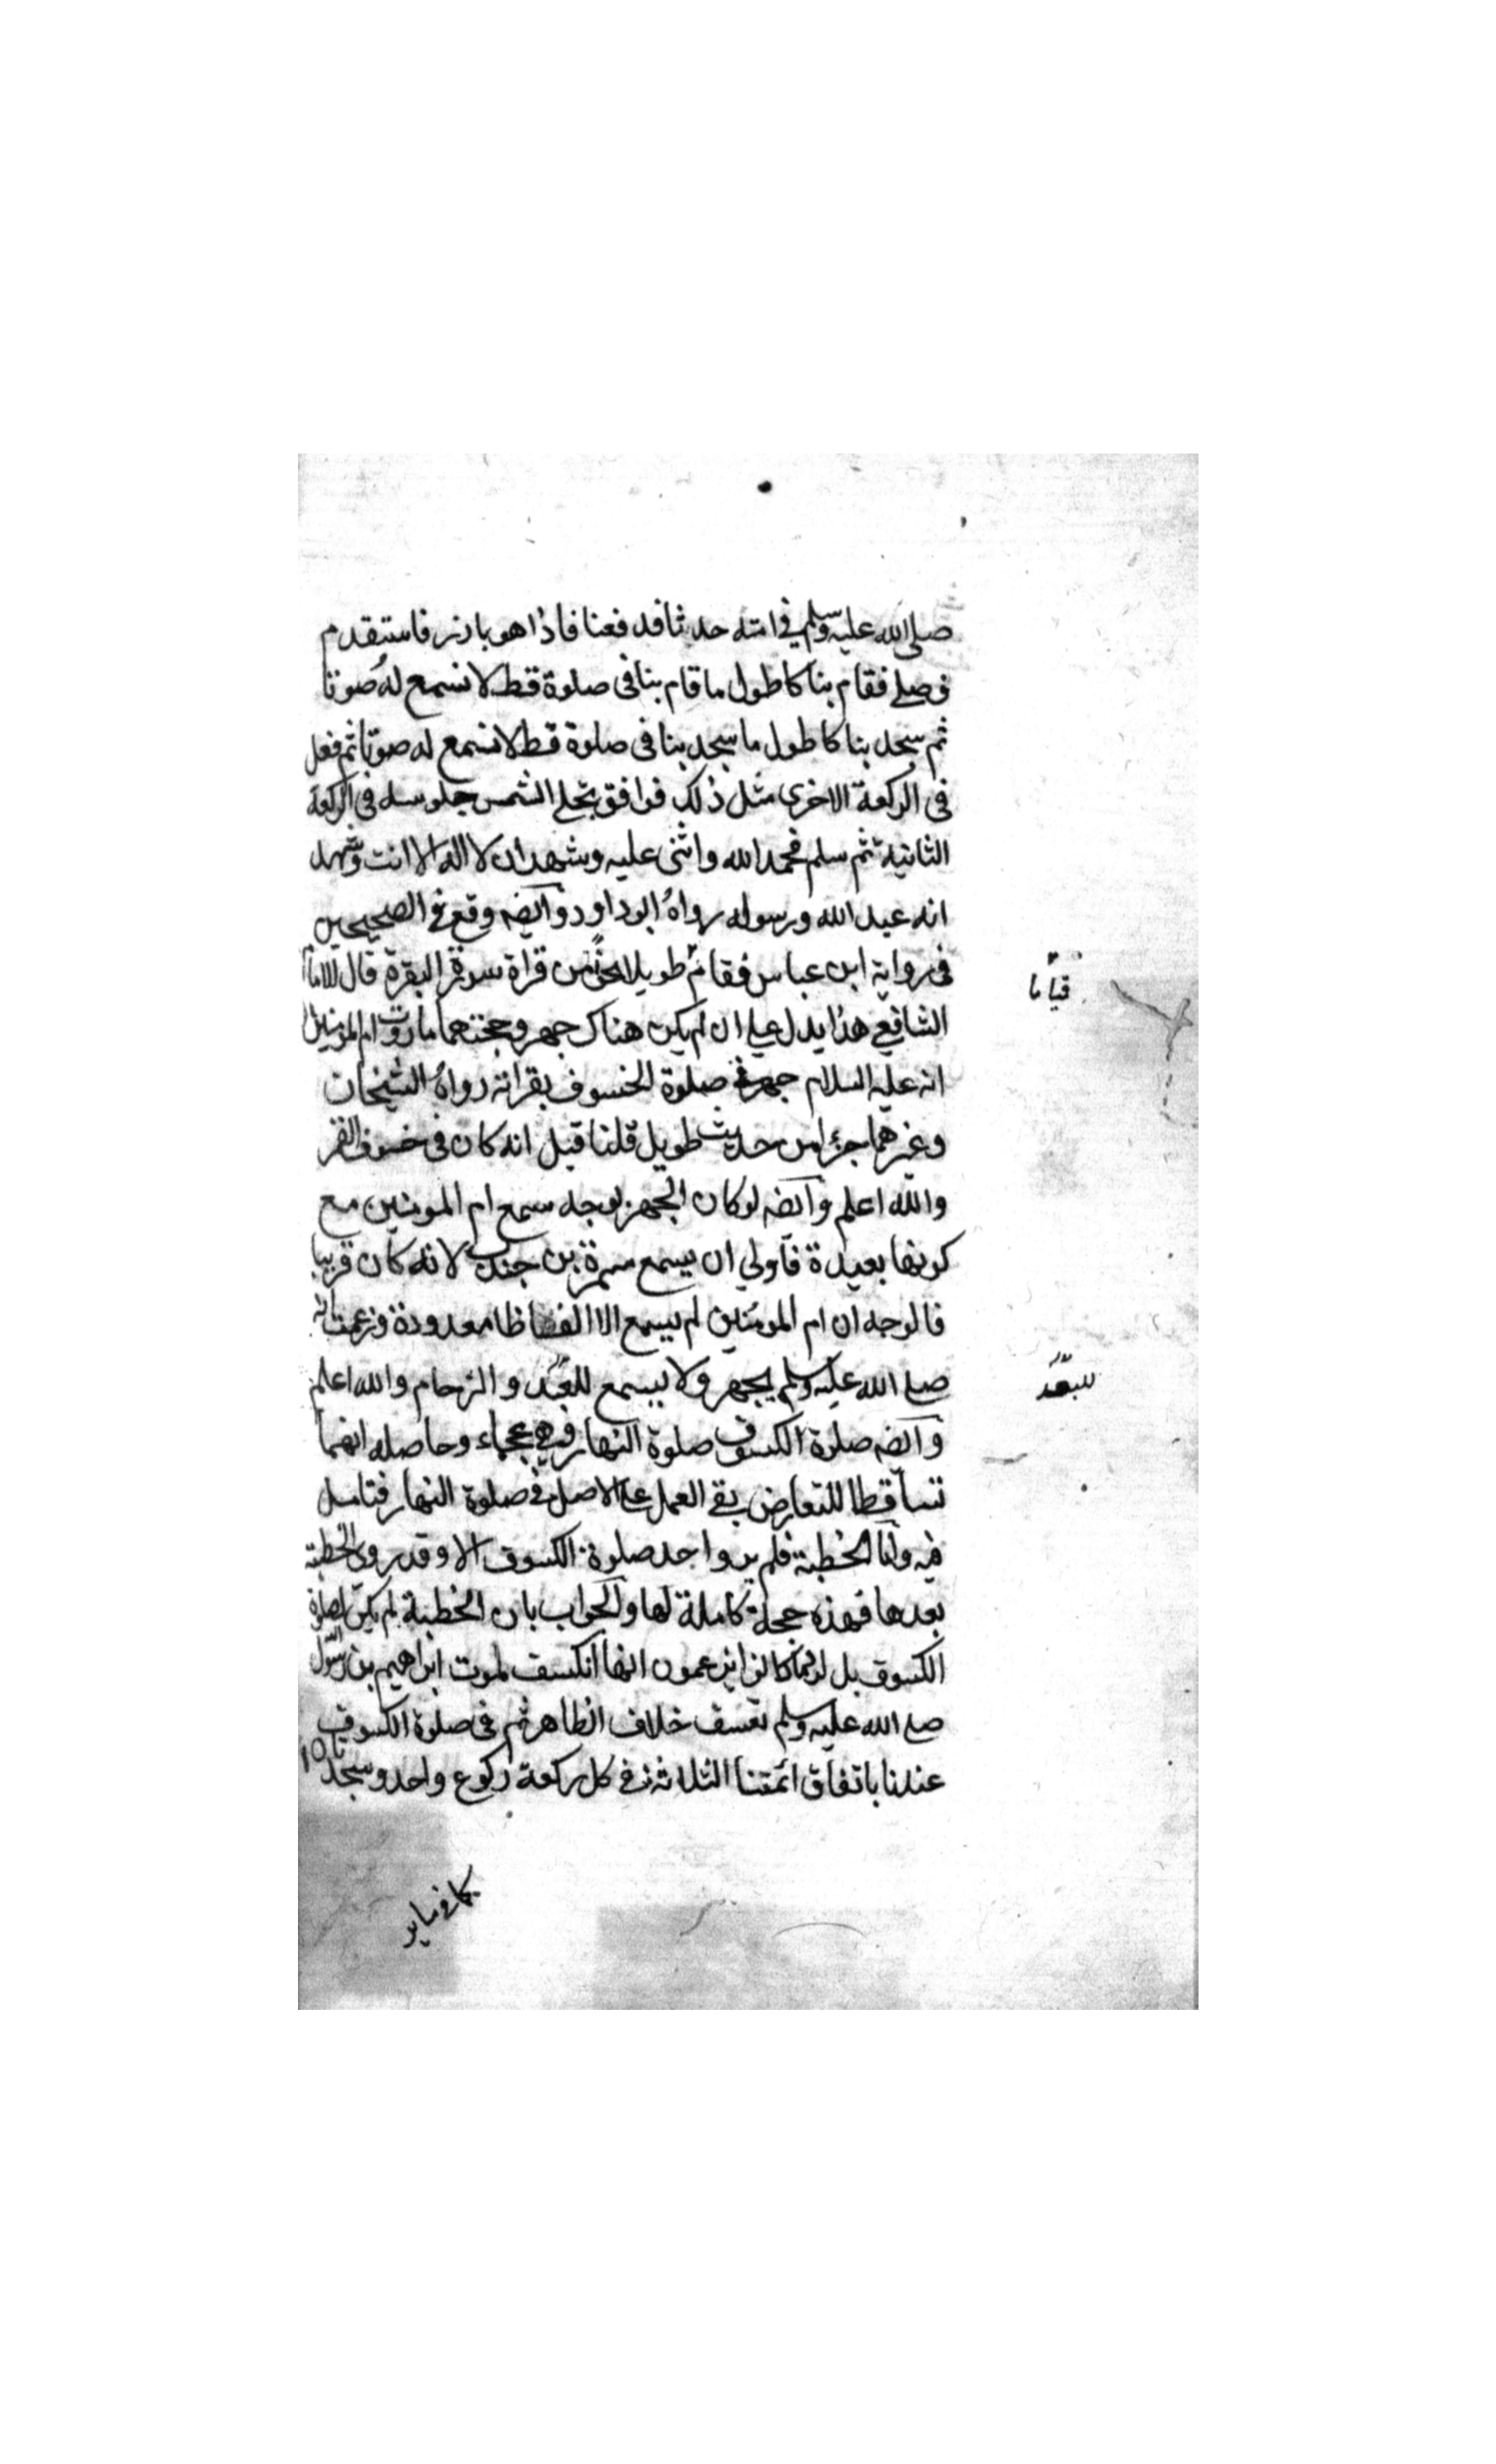 صلى الله عليه وسلم في امته حدثا فدفعنا فاذا هو بارز فاستقدم
فصلى فقام بنا كاطول ما قام بنا فى صلوة قط لا نسمع له صوتا
ثم سجد بنا كاطول ما سجد بنا فى صلوة قط لا نسمع له صوتا ثم فعل
فى الركعة الاخرى مثل ذلك فوافق تجلى الشمس جلوسه فى الركعة
الثانية ثم سلم فحمد الله واثنى عليه وشهد ان لا اله الا انت وشهد
انه عبد الله ورسوله رواه ابوداود وايضه وقع فى الصحيحين
فى رواية ابن عباس فقام طويلا نحوا من قراة سورة البقرة قال الامام
قياما
الشافعي هذا يدل على ان لم يكن هناك جهر وحجتهما ما روت ام المومنين
انه عليه السلام جهر فى صلوة الخسوف بقراته رواه الشيخان
وغيرهما جزا من حديث طويل قلنا قيل انه كان فى خسوف القمر
والله اعلم وايضه لو كان الجهر بوجه سمع ام المومنين مع
كونها بعيدة فاولي ان يسمع سمرة بن جندب لانه كان قريبا
فالوجه ان ام المومنين لم يسمع الا الفاظا معدودة وزعمت انه
صلى الله عليه وسلم يجهر ولا يسمع للبعد والزحام والله اعلم
للبعد
وايضه صلوة الكسوف صلوة النهار فهي عجماء وحاصله انهما
تساقطا للتعارض بقي العمل على الاصل فى صلوة النهار فتامل
فيه واما الخطبة فلم يرو احد صلوة الكسوف الا وقد روى الخطبة
بعدها فهذه حجة كاملة لها والجواب بان الخطبة لم يكن لصلوة
الكسوف بل لوهم كانوا يزعمون انها انكسف لموت ابراهيم بن رسول
صلى الله عليه وسلم تعسف خلاف الظاهر ثم فى صلوة الكسوف
عندنا باتفاق ائمتنا الثلاثة فى كل ركعة ركوع واحد وسجدتان
كما فى ساير